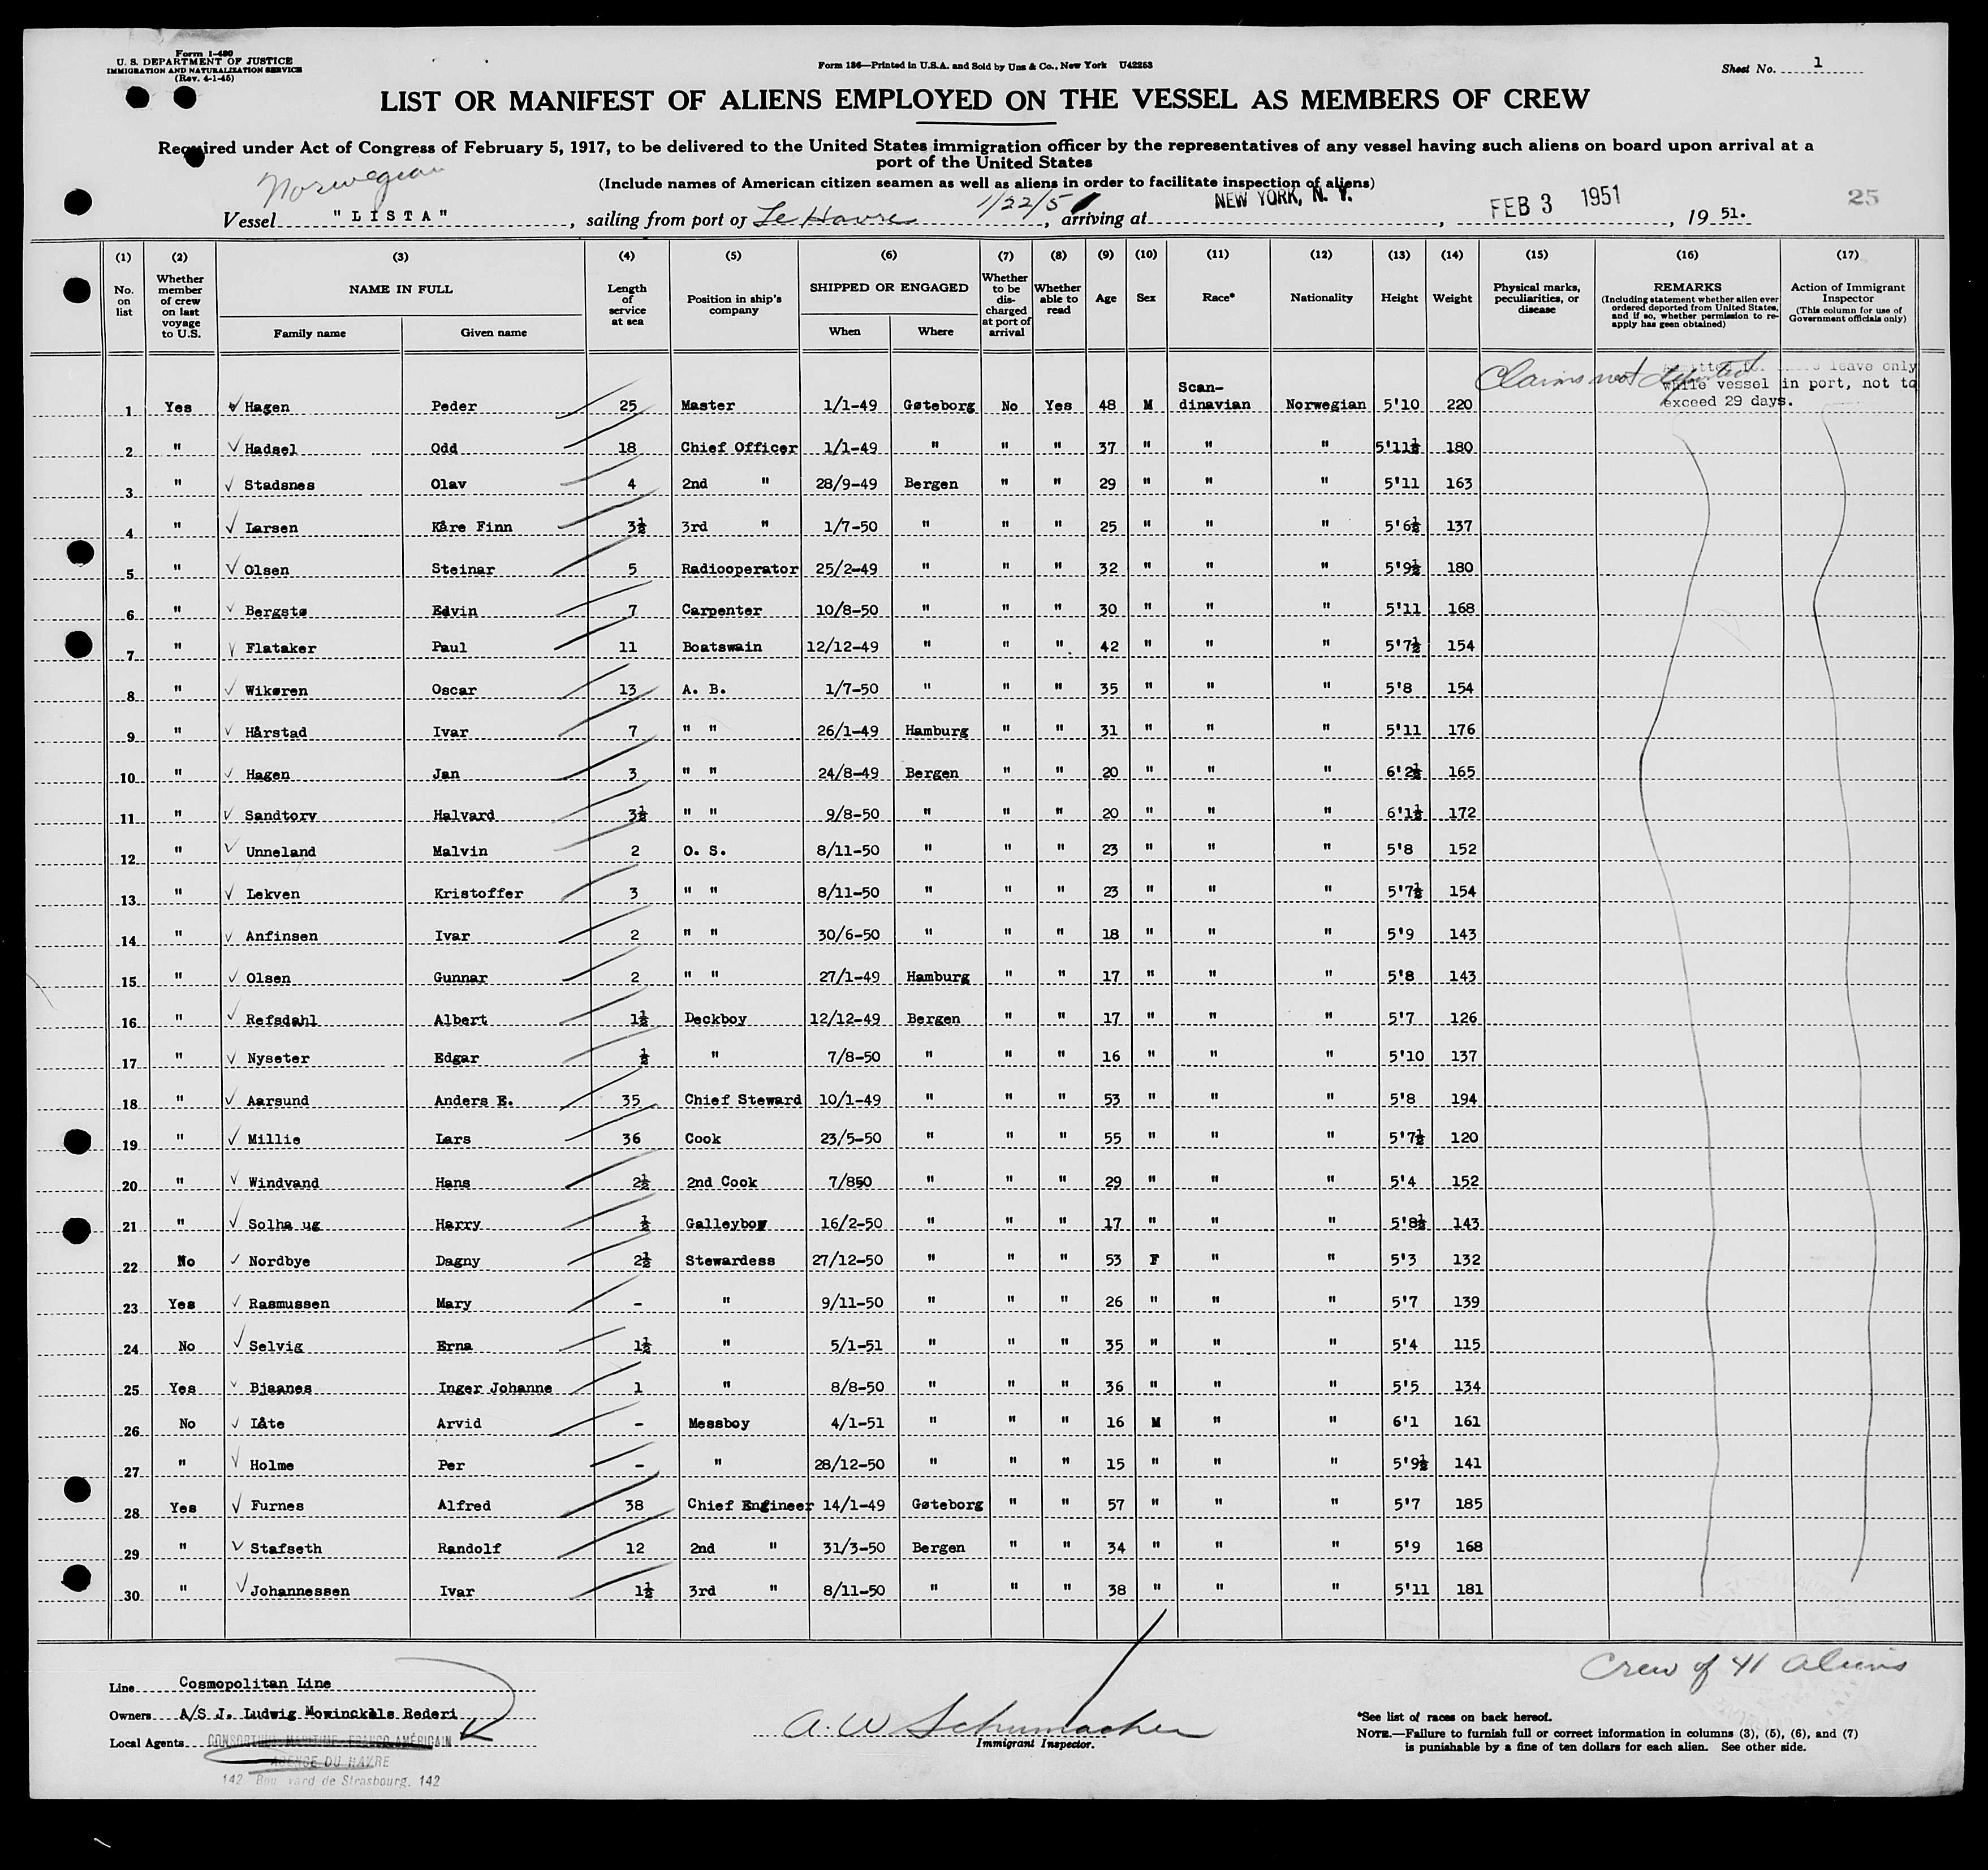 Form I-480
U. S. DEPARTMENT OF JUSTICE
IMMIGRATION AND NATURALIZATION SERVICE
(Rev. 4-1-45)
Form 186—Printed in U.S.A. and Sold by Unz & Co., New York U42253
Sheet No. 1
LIST OR MANIFEST OF ALIENS EMPLOYED ON THE VESSEL AS MEMBERS OF CREW
Required under Act of Congress of February 5, 1917, to be delivered to the United States immigration officer by the representatives of any vessel having such aliens on board upon arrival at a
port of the United States
(Include names of American citizen seamen as well as aliens in order to facilitate inspection of aliens)
Norwegian
Vessel "LISTA", sailing from port of Le Havre 1/22/51, arriving at NEW YORK, N. Y., FEB 3 1951, 19 51.
25
(1) No. on list
(2) Whether member of crew on last voyage to U.S.
(3) NAME IN FULL
Family name Given name
(4) Length of service at sea
(5) Position in ship's company
(6) SHIPPED OR ENGAGED
When Where
(7) Whether to be discharged at port of arrival
(8) Whether able to read
(9) Age
(10) Sex
(11) Race*
(12) Nationality
(13) Height
(14) Weight
(15) Physical marks, peculiarities, or disease
(16) REMARKS (Including statement whether alien ever ordered deported from United States, and if so, whether permission to re-apply has geen obtained)
(17) Action of Immigrant Inspector (This column for use of Government officials only)
Claims not deported
leave only
while vessel in port, not to
exceed 29 days.
1 Yes Hagen Peder 25 Master 1/1-49 Gøteborg No Yes 48 M Scan-dinavian Norwegian 5'10 220
2 " Hadsel Odd 18 Chief Officer 1/1-49 " " " 37 " " " 5'11½ 180
3 " Stadsnes Olav 4 2nd " 28/9-49 Bergen " " 29 " " " 5'11 163
4 " Larsen Kåre Finn 3½ 3rd " 1/7-50 " " " 25 " " " 5'6½ 137
5 " Olsen Steinar 5 Radiooperator 25/2-49 " " " 32 " " " 5'9½ 180
6 " Bergstø Edvin 7 Carpenter 10/8-50 " " " 30 " " " 5'11 168
7 " Flataker Paul 11 Boatswain 12/12-49 " " " 42 " " " 5'7½ 154
8 " Wikøren Oscar 13 A. B. 1/7-50 " " " 35 " " " 5'8 154
9 " Hårstad Ivar 7 " " 26/1-49 Hamburg " " 31 " " " 5'11 176
10 " Hagen Jan 3 " " 24/8-49 Bergen " " 20 " " " 6'2½ 165
11 " Sandtorv Halvard 3½ " " 9/8-50 " " " 20 " " " 6'1½ 172
12 " Unneland Malvin 2 O. S. 8/11-50 " " " 23 " " " 5'8 152
13 " Lekven Kristoffer 3 " " 8/11-50 " " " 23 " " " 5'7½ 154
14 " Anfinsen Ivar 2 " " 30/6-50 " " " 18 " " " 5'9 143
15 " Olsen Gunnar 2 " " 27/1-49 Hamburg " " 17 " " " 5'8 143
16 " Refsdahl Albert 1½ Deckboy 12/12-49 Bergen " " 17 " " " 5'7 126
17 " Nyseter Edgar ½ " 7/8-50 " " " 16 " " " 5'10 137
18 " Aarsund Anders E. 35 Chief Steward 10/1-49 " " " 53 " " " 5'8 194
19 " Millie Lars 36 Cook 23/5-50 " " " 55 " " " 5'7½ 120
20 " Windvand Hans 2½ 2nd Cook 7/850 " " " 29 " " " 5'4 152
21 " Solha ug Harry ½ Galleyboy 16/2-50 " " " 17 " " " 5'8½ 143
22 No Nordbye Dagny 2½ Stewardess 27/12-50 " " " 53 F " " 5'3 132
23 Yes Rasmussen Mary - " 9/11-50 " " " 26 " " " 5'7 139
24 No Selvig Erna 1½ " 5/1-51 " " " 35 " " " 5'4 115
25 Yes Bjaanes Inger Johanne 1 " 8/8-50 " " " 36 " " " 5'5 134
26 No Låte Arvid - Messboy 4/1-51 " " " 16 M " " 6'1 161
27 " Holme Per - " 28/12-50 " " " 15 " " " 5'9½ 141
28 Yes Furnes Alfred 38 Chief Engineer 14/1-49 Gøteborg " " 57 " " " 5'7 185
29 " Stafseth Randolf 12 2nd " 31/3-50 Bergen " " 34 " " " 5'9 168
30 " Johannessen Ivar 1½ 3rd " 8/11-50 " " " 38 " " " 5'11 181
Crew of 41 aliens
Line Cosmopolitan Line
Owners A/S J. Ludwig Mowinckels Rederi
Local Agents CONSORTIUM MARITIME FRANCO-AMÉRICAIN
AGENCE DU HAVRE
142 de Strasbourg. 142
A. W Schumacher
Immigrant Inspector.
*See list of races on back hereof.
NOTE.—Failure to furnish full or correct information in columns (3), (5), (6), and (7)
is punishable by a fine of ten dollars for each alien. See other side.